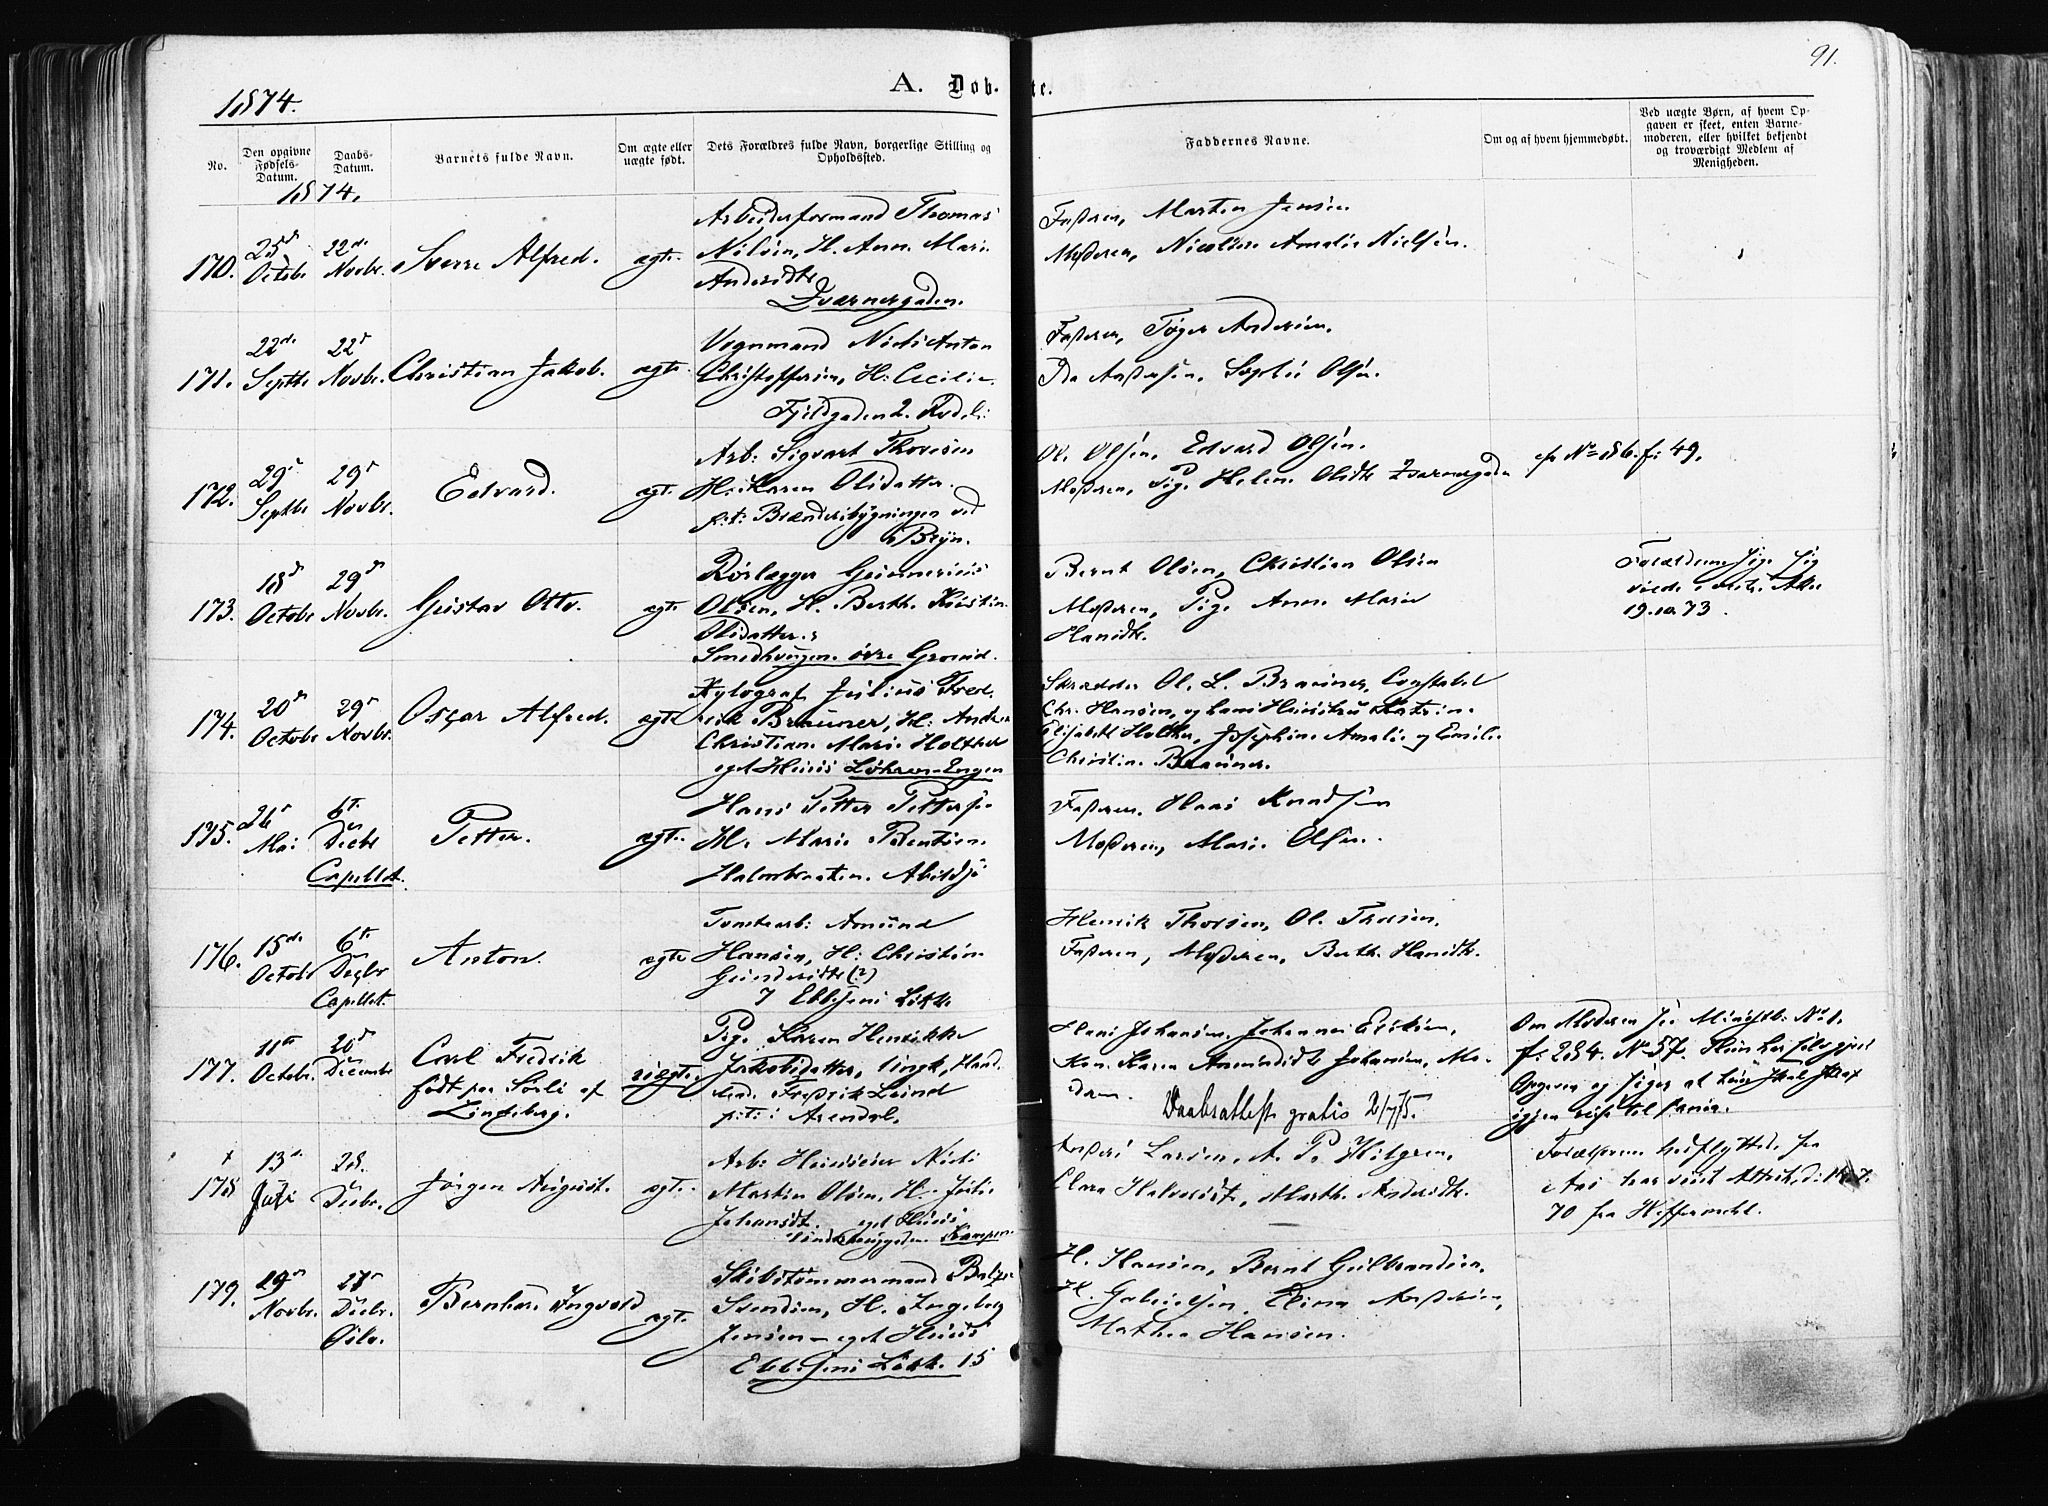 91.
1874.
A. Døbte.
No.
Den opgivne Fødsels-Datum.
Daabs-Datum.
Barnets fulde Navn.
Om ægte eller uægte født.
Dets Forældres fulde Navn, borgerlige Stilling og Opholdssted.
Faddernes Navne.
Om og af hvem hjemmedøbt.
Ved uægte Børn, af hvem Opgaven er skeet, enten Barnemoderen, eller hvilket bekjendt og troværdigt Medlem af Menigheden.
1874.
170. 25d Octobr 22de Novbr. Sverre Alfred. ægte.
Arbeiderformand Thomas
Nilsen, H. Anne Marie
Andersdtr
Kværnergaden.
Faderen, Martin Jensen
Moderen, Nicoline Amalie Nielsen.
171. 22de Septbr 22d Novbr. Christian Jakob. ægte.
Vognmand Niels Anton
Christoffersen, H: Cecilie
Fjeldgaden 2.
Faderen, Tøger Andersen.
Ida Andersen, Sophie Olsen.
172. 29d Septbr 29d Novbr. Edvard. ægte.
Arb: Sigvart Thoresen
H: Karen Olsdatter.
p:t: Brænderibygningen ved
Bryn.
Ole Olsen, Edvard Olsen.
Moderen, Pige Helene Olsdtr Kværnergaden
cfr No 186. f: 49.
173. 18d Octobr 29d Novbr. Gustav Otto. ægte
Rørlægger Gunnerius
Olsen, H. Berthe Kirstine
Olsdatter.
Smedhaugen øvre Grønd.
Bernt Olsen, Christian Olsen
Moderen, Pige Anne Marie
Hansdtr.
Forældrene sige sig
viede i Aker
19.10.73.
174. 20d Octobr 29d Novbr. Oscar Alfred. ægte
Xylograf Julius Fred-
rik Brauner, H: Andrea
Christiane Marie Holther
eget Huus Løkren-Engen
Skrædder Ole L. Brauner, Constabel
Chr. Hansen, og hans Hustru Katrine
Elisabeth Holther, Josephine Amalie og Emilie
Christine Brauner.
175. 26d Mai 6te Decbr Capellet. Petter. ægte.
Hans Petter Petters.
H. Marie Berntsen.
Halvorbraaten. Abildsø
Faderen, Hans Knudsen
Moderen, Marie Olsen.
176. 15de Octobr 6te Decbr Capellet. Anton. ægte
Tomtearb: Amund
Hansen, H: Christine
Gundersdtr (?)
7 Ebbesens Løkke
Henrik Thorsen, Ole Thorsen.
Faderen, Moderen, Berthe Hansdtr.
177. 11te Octobr. 20d Decembr Carl Fredrik
født paa Sørli af
Lindeberg.
uægte.
Pige Karen Henrikke
Jakobsdatter, Ungk. Hand-
lende Fredrik Lund
p:t: i Arendal.
Hans Johansen, Johannes Eriksen,
Kone Karen Amundsdtr Johansen, Ma-
dam.
Daabsattest gratis 2/7 75.
Om Moderen see Ministb: No 1.
f: 284. No 57. Hun har selv gjort
Opgaven og siger at hun skal strax
igjen reise til
178. 13de Juli 28. Decbr. Jørgen August. ægte.
Arb: Huuseier Niels
Martin Olsen, H: Julie
Johansdt. eget Huus
Kampen.
Anders Larsen, A. P. Hilgren,
Clara Halvorsdtr, Marthe Andersdtr.
Forældrene hidflyttede fra
Aas har viist Attest, d: 18.7.
70 fra Heffermehl.
179. 29d Novbr. 27d Decbr. Oslo. Bernhard Ingvald ægte.
Skibstømmermand
Svendsen, H. Ingeborg
Jensen – eget Huus
Ebbesens Løkke 15
H. Hansen, Bernt Gulbrandsen,
H. Gabrielsen, Elina Andersen,
Mathea Hansen.